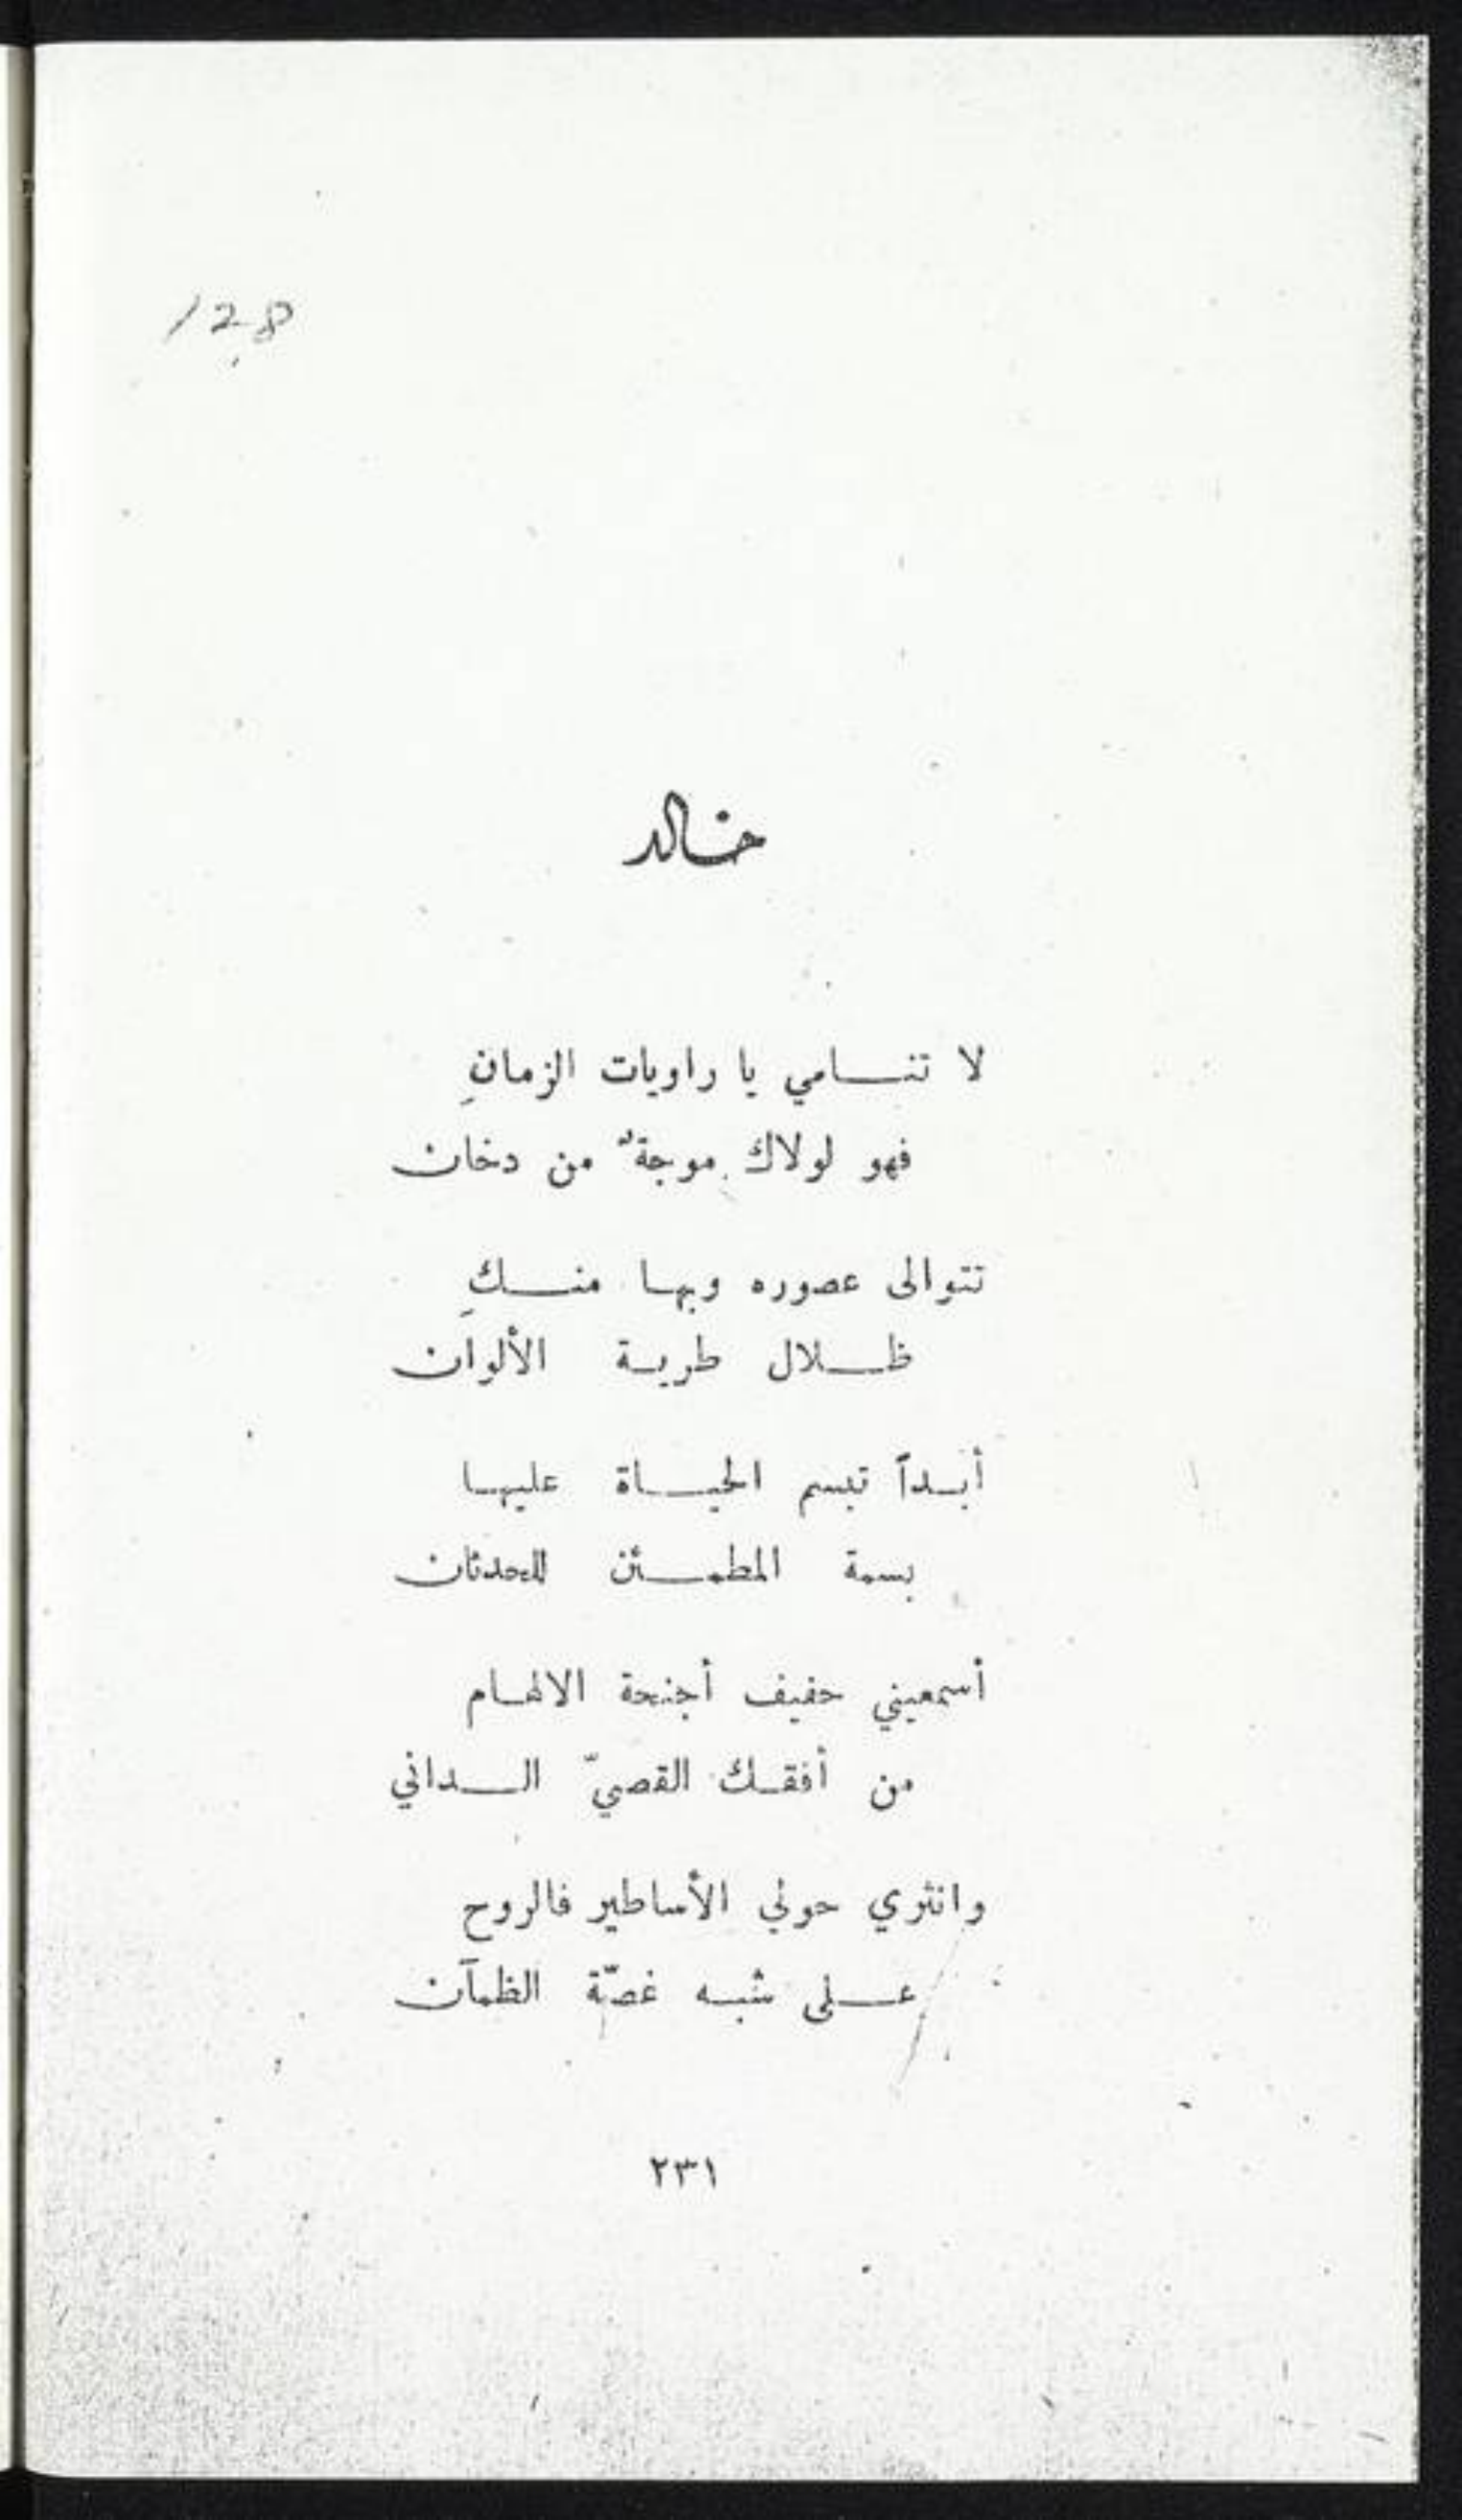 128
خالد
لا تنامي يا راويات الزمانِ
فهو لولاك موجةٌ من دخان
تتوالى عصوره وبها منكِ
ظلال طرية الألوان
أبداً تبسم الحياة عليها
بسمة المطمئن للحدثان
أسمعيني حفيف أجنحة الالهام
من أفقك القصيّ الداني
وانثري حولي الأساطير فالروح
على شبه غصّة الظمآن
٢٣١